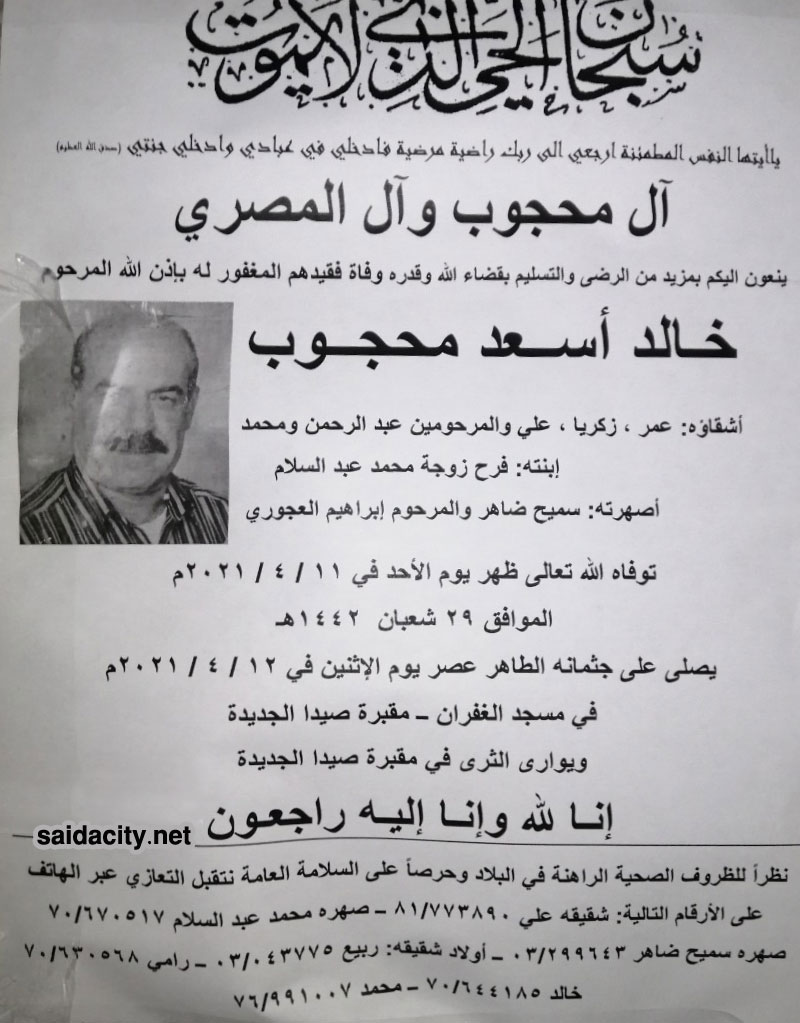 سبحان الحي الذي لا يموت
ياأيتها النفس المطمئنة ارجعي الى ربك راضية مرضية فادخلي في عبادي وادخلي جنتي (صدق الله العظيم)
آل محجوب وآل المصري
ينعون اليكم بمزيد من الرضى والتسليم بقضاء الله وقدره وفاة فقيدهم المغفور له بإذن الله المرحوم
خالد أسعد محجوب
أشقاؤه: عمر ، زكريا ، علي والمرحومين عبد الرحمن ومحمد
إبنته: فرح زوجة محمد عبد السلام
أصهرته: سميح ضاهر والمرحوم إبراهيم العجوري
توفاه الله تعالى ظهر يوم الأحد في ١١ / ٤ / ٢٠٢١م
الموافق ٢٩ شعبان ١٤٤٢هـ
يصلى على جثمانه الطاهر عصر يوم الإثنين في ١٢ / ٤ / ٢٠٢١م
في مسجد الغفران – مقبرة صيدا الجديدة
ويوارى الثرى في مقبرة صيدا الجديدة
إنا لله وإنا إليه راجعون
saidacity.net
نظراً للظروف الصحية الراهنة في البلاد وحرصاً على السلامة العامة نتقبل التعازي عبر الهاتف
على الأرقام التالية: شقيقه علي ٨١/٧٧٣٨٩٠ – صهره محمد عبد السلام ٧٠/٦٧٠٥١٧
صهره سميح ضاهر ٠٣/٢٩٩٦٤٣ – أولاد شقيقه: ربيع ٠٣/٠٤٣٧٧٥ – رامي ٧٠/٦٣٠٥٦٨
خالد ٧٠/٦٤٤١٨٥ – محمد ٧٦/٩٩١٠٠٧